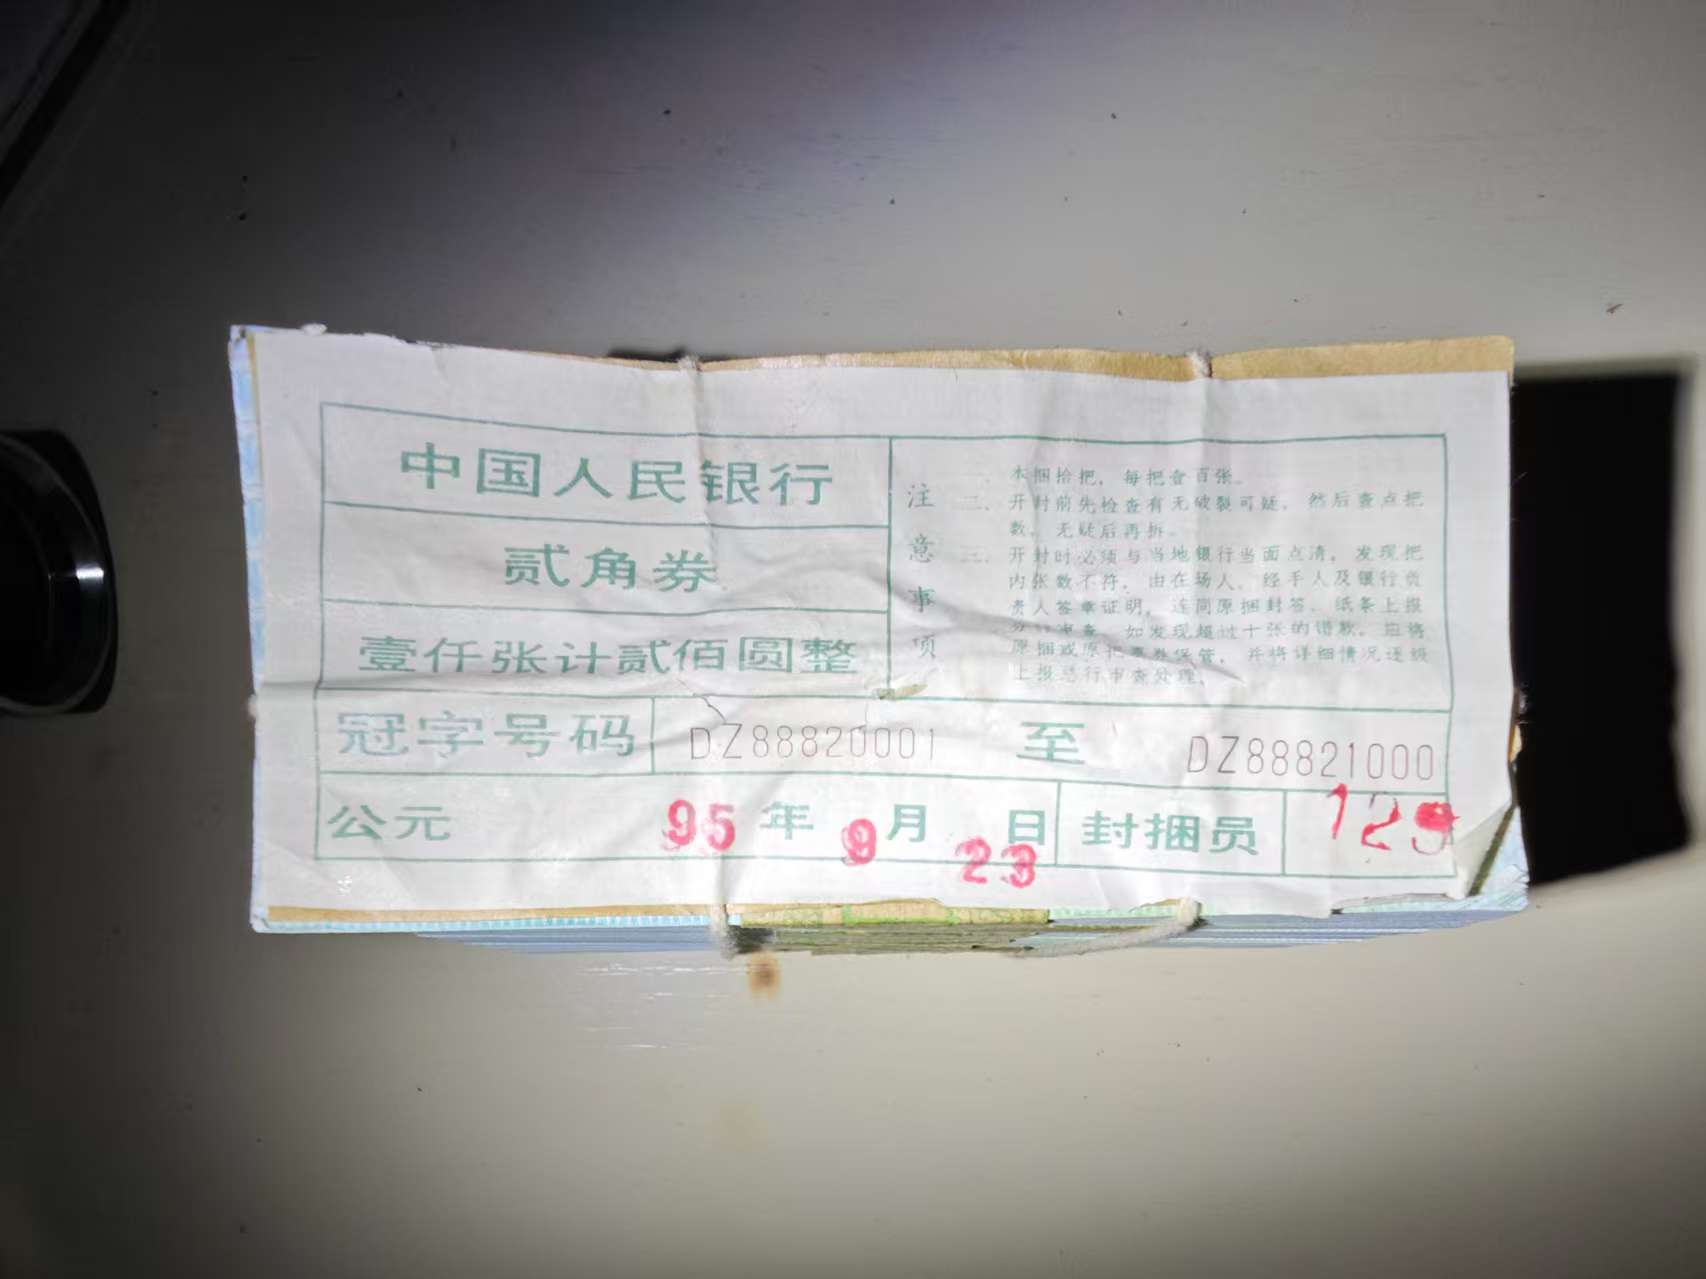 中国人民银行
贰角券
壹仟张计贰佰圆整
注意事项
一、本捆拾把，每把壹百张。
二、开封前先检查有无破裂可疑，然后查点把
数，无疑后再拆。
三、开封时必须与当地银行当面点清，发现把
内张数不符，由在场人、经手人及银行负
责人签章证明，连同原捆封签、纸条上报
分行审查，如发现超过十张的错款，应将
原捆或原把票券保管，并将详细情况逐级
上报总行审查处理。
冠字号码 DZ88820001 至 DZ88821000
公元 95 年 9 月 23 日 封捆员 129